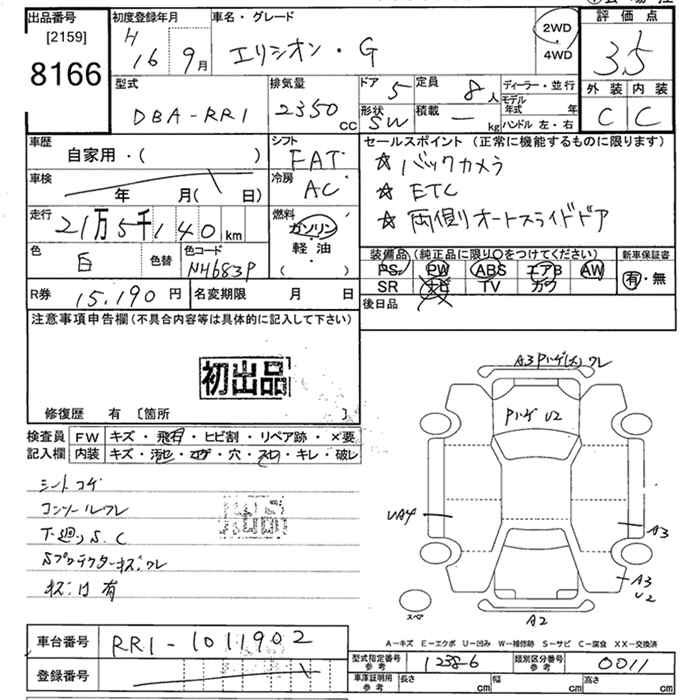 出品番号
[2159]
8166
初度登録年月
H 16 9月
車名・グレード
エリシオン・G
2WD
・
4WD
評価点
3.5
外装 内装
C C
型式
DBA-RR1
排気量
2350 CC
ドア 5
形状 SW
定員 8人
積載 ー kg
ディーラー・並行
モデル年式 年
ハンドル 左・右
車歴
自家用・( )
シフト
FAT
セールスポイント (正常に機能するものに限ります)
☆ バックカメラ
☆ ETC
☆ 両側オートスライドドア
車検
年 月( 日)
冷房
AC
走行
21万5千140 km
燃料
ガソリン
軽油
( )
色
白
色替
色コード
NH683P
装備品 (純正品に限り○をつけてください)
PS PW ABS エアB AW
SR ナビ TV カワ
新車保証書
有・無
R券 15,190円
名変期限 月 日
後日品
注意事項申告欄 (不具合内容等は具体的に記入して下さい)
初出品
修復歴 有 〔箇所 〕
検査員
記入欄
FW キズ・飛石・ヒビ割・リペア跡・×要
内装 キズ・汚れ・コゲ・穴・スレ・キレ・破レ
シートコゲ
コンソールワレ
下廻りS.C
Sプロテクターキズ.ワレ
キズ凹有
A3 Pハゲ(大) ワレ
Pハゲ U2
UA4
A3
A3
U2
スペア
A2
A-キズ E-エクボ U-凹み W-補修跡 S-サビ C-腐食 XX-交換済
車台番号 RR1-1011902
登録番号
型式指定番号
参考
1238-6
類別区分番号
参考
0011
車庫証明用
参考
長さ cm 幅 cm 高さ cm